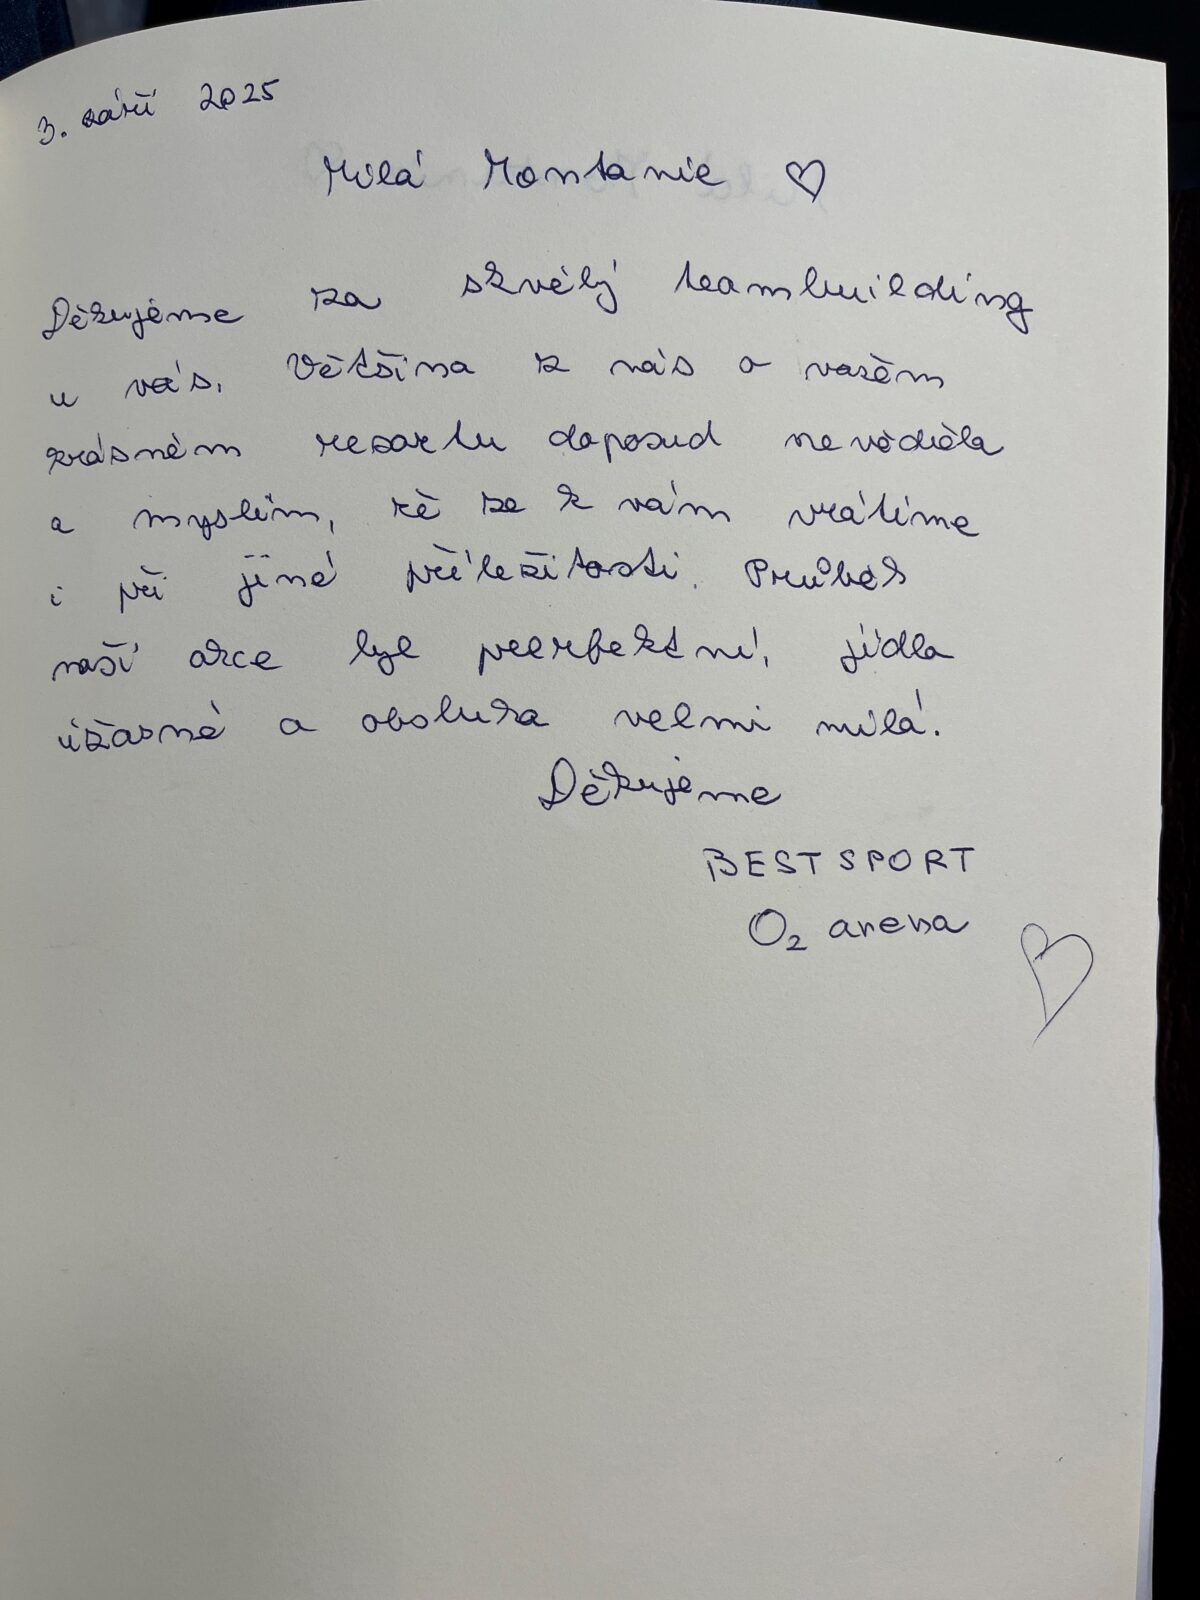 3. září 2025
Milá Montanie ♡
Děkujeme za skvělý teambuilding
u vás. Většina z nás o vašem
krásném resortu doposud nevěděla
a myslím, že se k vám vrátíme
i při jiné příležitosti. Průběh
naší akce byl peerfektní, jídla
úžasné a obsluha velmi milá.
Děkujeme
BESTSPORT
O₂ arena
♡